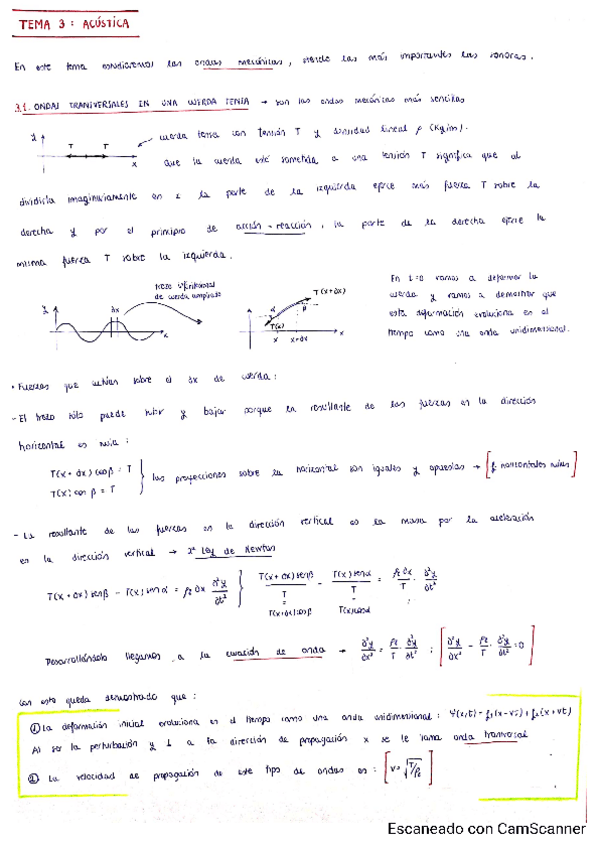 TEMA 3: ACÚSTICA
En este tema estudiaremos las ondas mecánicas, siendo las más importantes las sonoras.
3.1. ONDAS TRANSVERSALES EN UNA CUERDA TENSA → son las ondas mecánicas más sencillas
y T T x
cuerda tensa con tensión T y densidad lineal ρ (Kg/m).
Que la cuerda esté sometida a una tensión T significa que al
dividirla imaginariamente en 2 la parte de la izquierda ejerce más fuerza T sobre la
derecha y por el principio de acción-reacción, la parte de la derecha ejerce la
misma fuerza T sobre la izquierda.
y Δx x
trozo
de cuerda ampliado
T(x+Δx)
α β
T(x)
x x+Δx x
En t=0 vamos a deformar la
cuerda y vamos a demostrar que
esta deformación evoluciona en el
tiempo como una onda unidimensional.
• Fuerzas que actúan sobre el Δx de cuerda:
- El trozo sólo puede subir y bajar porque la resultante de las fuerzas en la dirección
horizontal es nula:
T(x+Δx) cos β = T
T(x) cos β = T
las proyecciones sobre la horizontal son iguales y opuestas → [f horizontales nulas]
- La resultante de las fuerzas en la dirección vertical es la masa por la aceleración
en la dirección vertical → 2ª Ley de Newton
T(x+Δx) sen β - T(x) sen α = ρℓ Δx ∂²y/∂t² } T(x+Δx) sen β / T - T(x) sen α / T = ρℓ/T · ∂²y/∂t²
T(x+Δx) cos β T(x) cos α
Desarrollándolo llegamos a la ecuación de onda → ∂²y/∂x² = ρℓ/T · ∂²y/∂t² ; [∂²y/∂x² - ρℓ/T · ∂²y/∂t² = 0]
Con esto queda demostrado que:
① La deformación inicial evoluciona en el tiempo como una onda unidimensional: Ψ(x,t) = f₁(x-vt) + f₂(x+vt)
Al ser la perturbación y ⊥ a la dirección de propagación x se le llama onda transversal
② La velocidad de propagación de este tipo de ondas es: [v = √(T/ρℓ)]
Escaneado con CamScanner